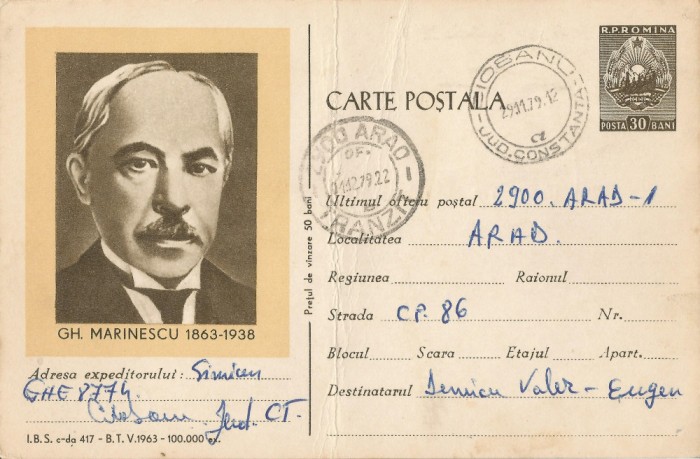 R.P.ROMINA
POSTA 30 BANI
CARTE POȘTALĂ
CIOBANU
29.11.79.12
a
JUD. CONSTANȚA
2900 ARAD
OF.
01.12.79.22
TRANZIT
Prețul de vînzare 50 bani
Ultimul oficiu poștal 2900. ARAD-1
Localitatea ARAD.
Regiunea Raionul
Strada CP. 86 Nr.
Blocul Scara Etajul Apart.
Destinatarul Valer - Eugen
GH. MARINESCU 1863-1938
Adresa expeditorului: Simion
GHE 8774
Ciobanu Jud. CT.
I.B.S. c-da 417 - B.T. V.1963 - 100.000 ex.